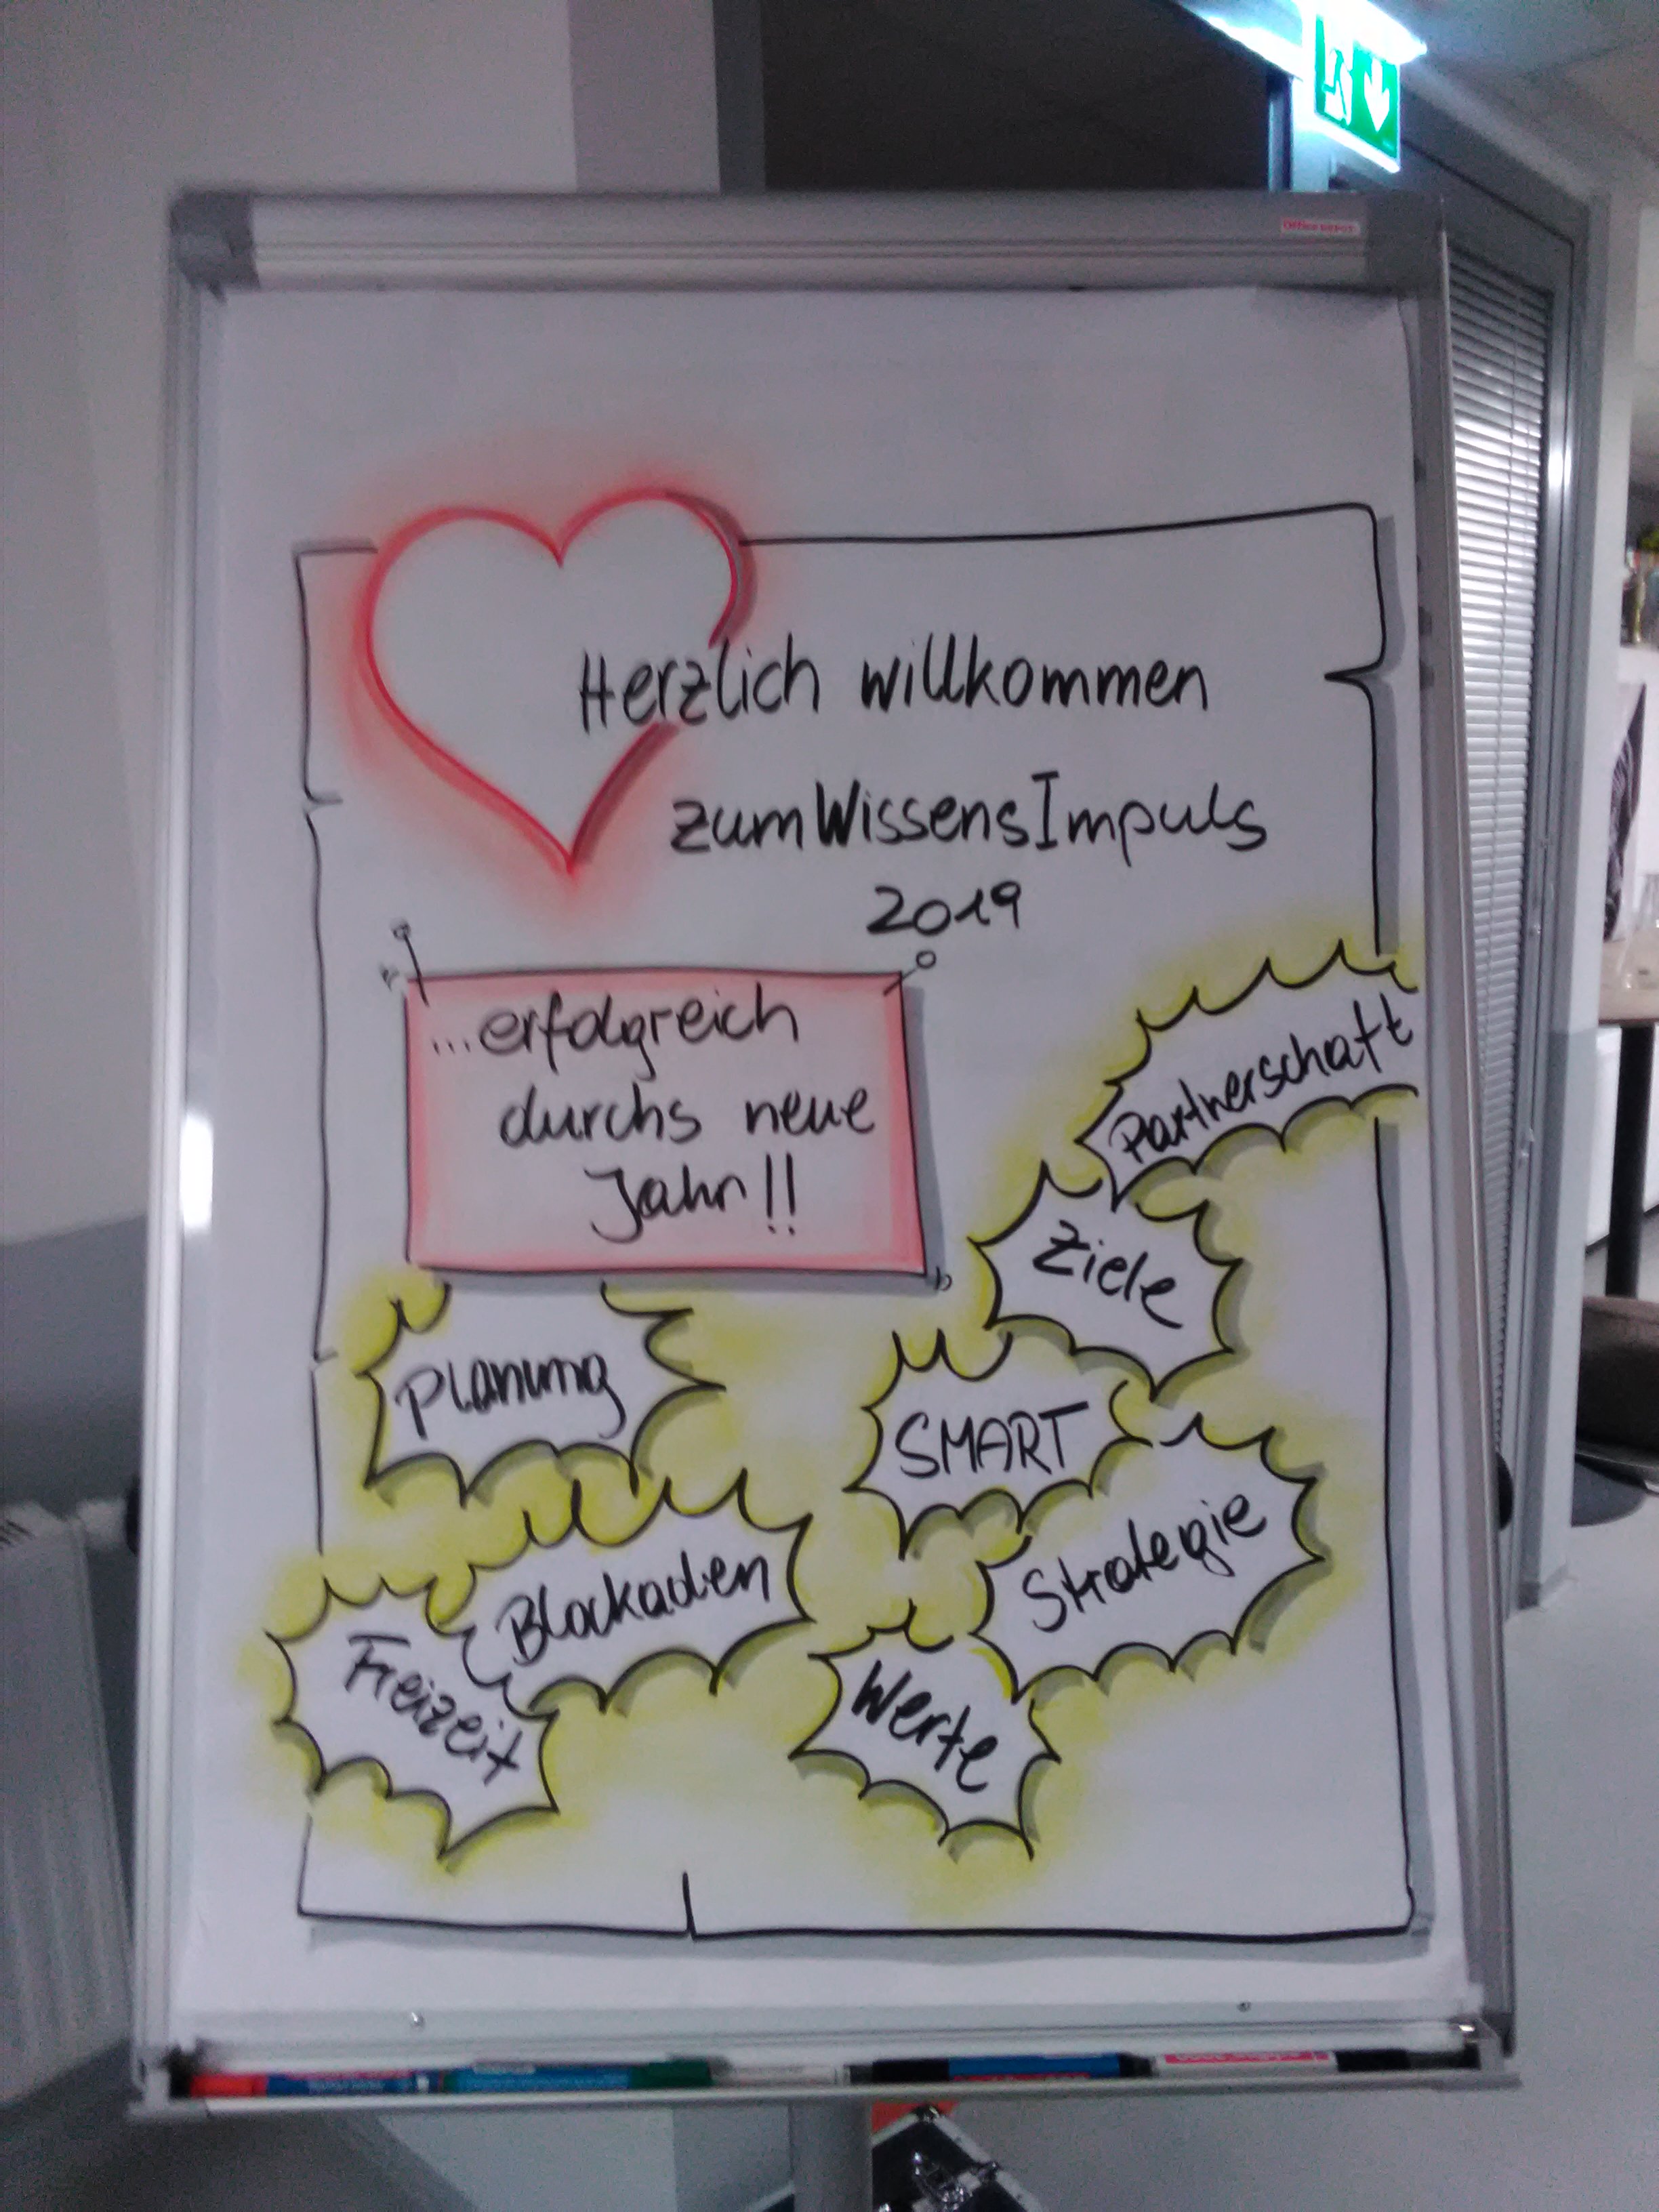 Office DEPOT
Herzlich willkommen
zum WissensImpuls
2019
...erfolgreich
durchs neue
Jahr!!
Partnerschaft
Ziele
Planung
SMART
Strategie
Blockaden
Freizeit
Werte